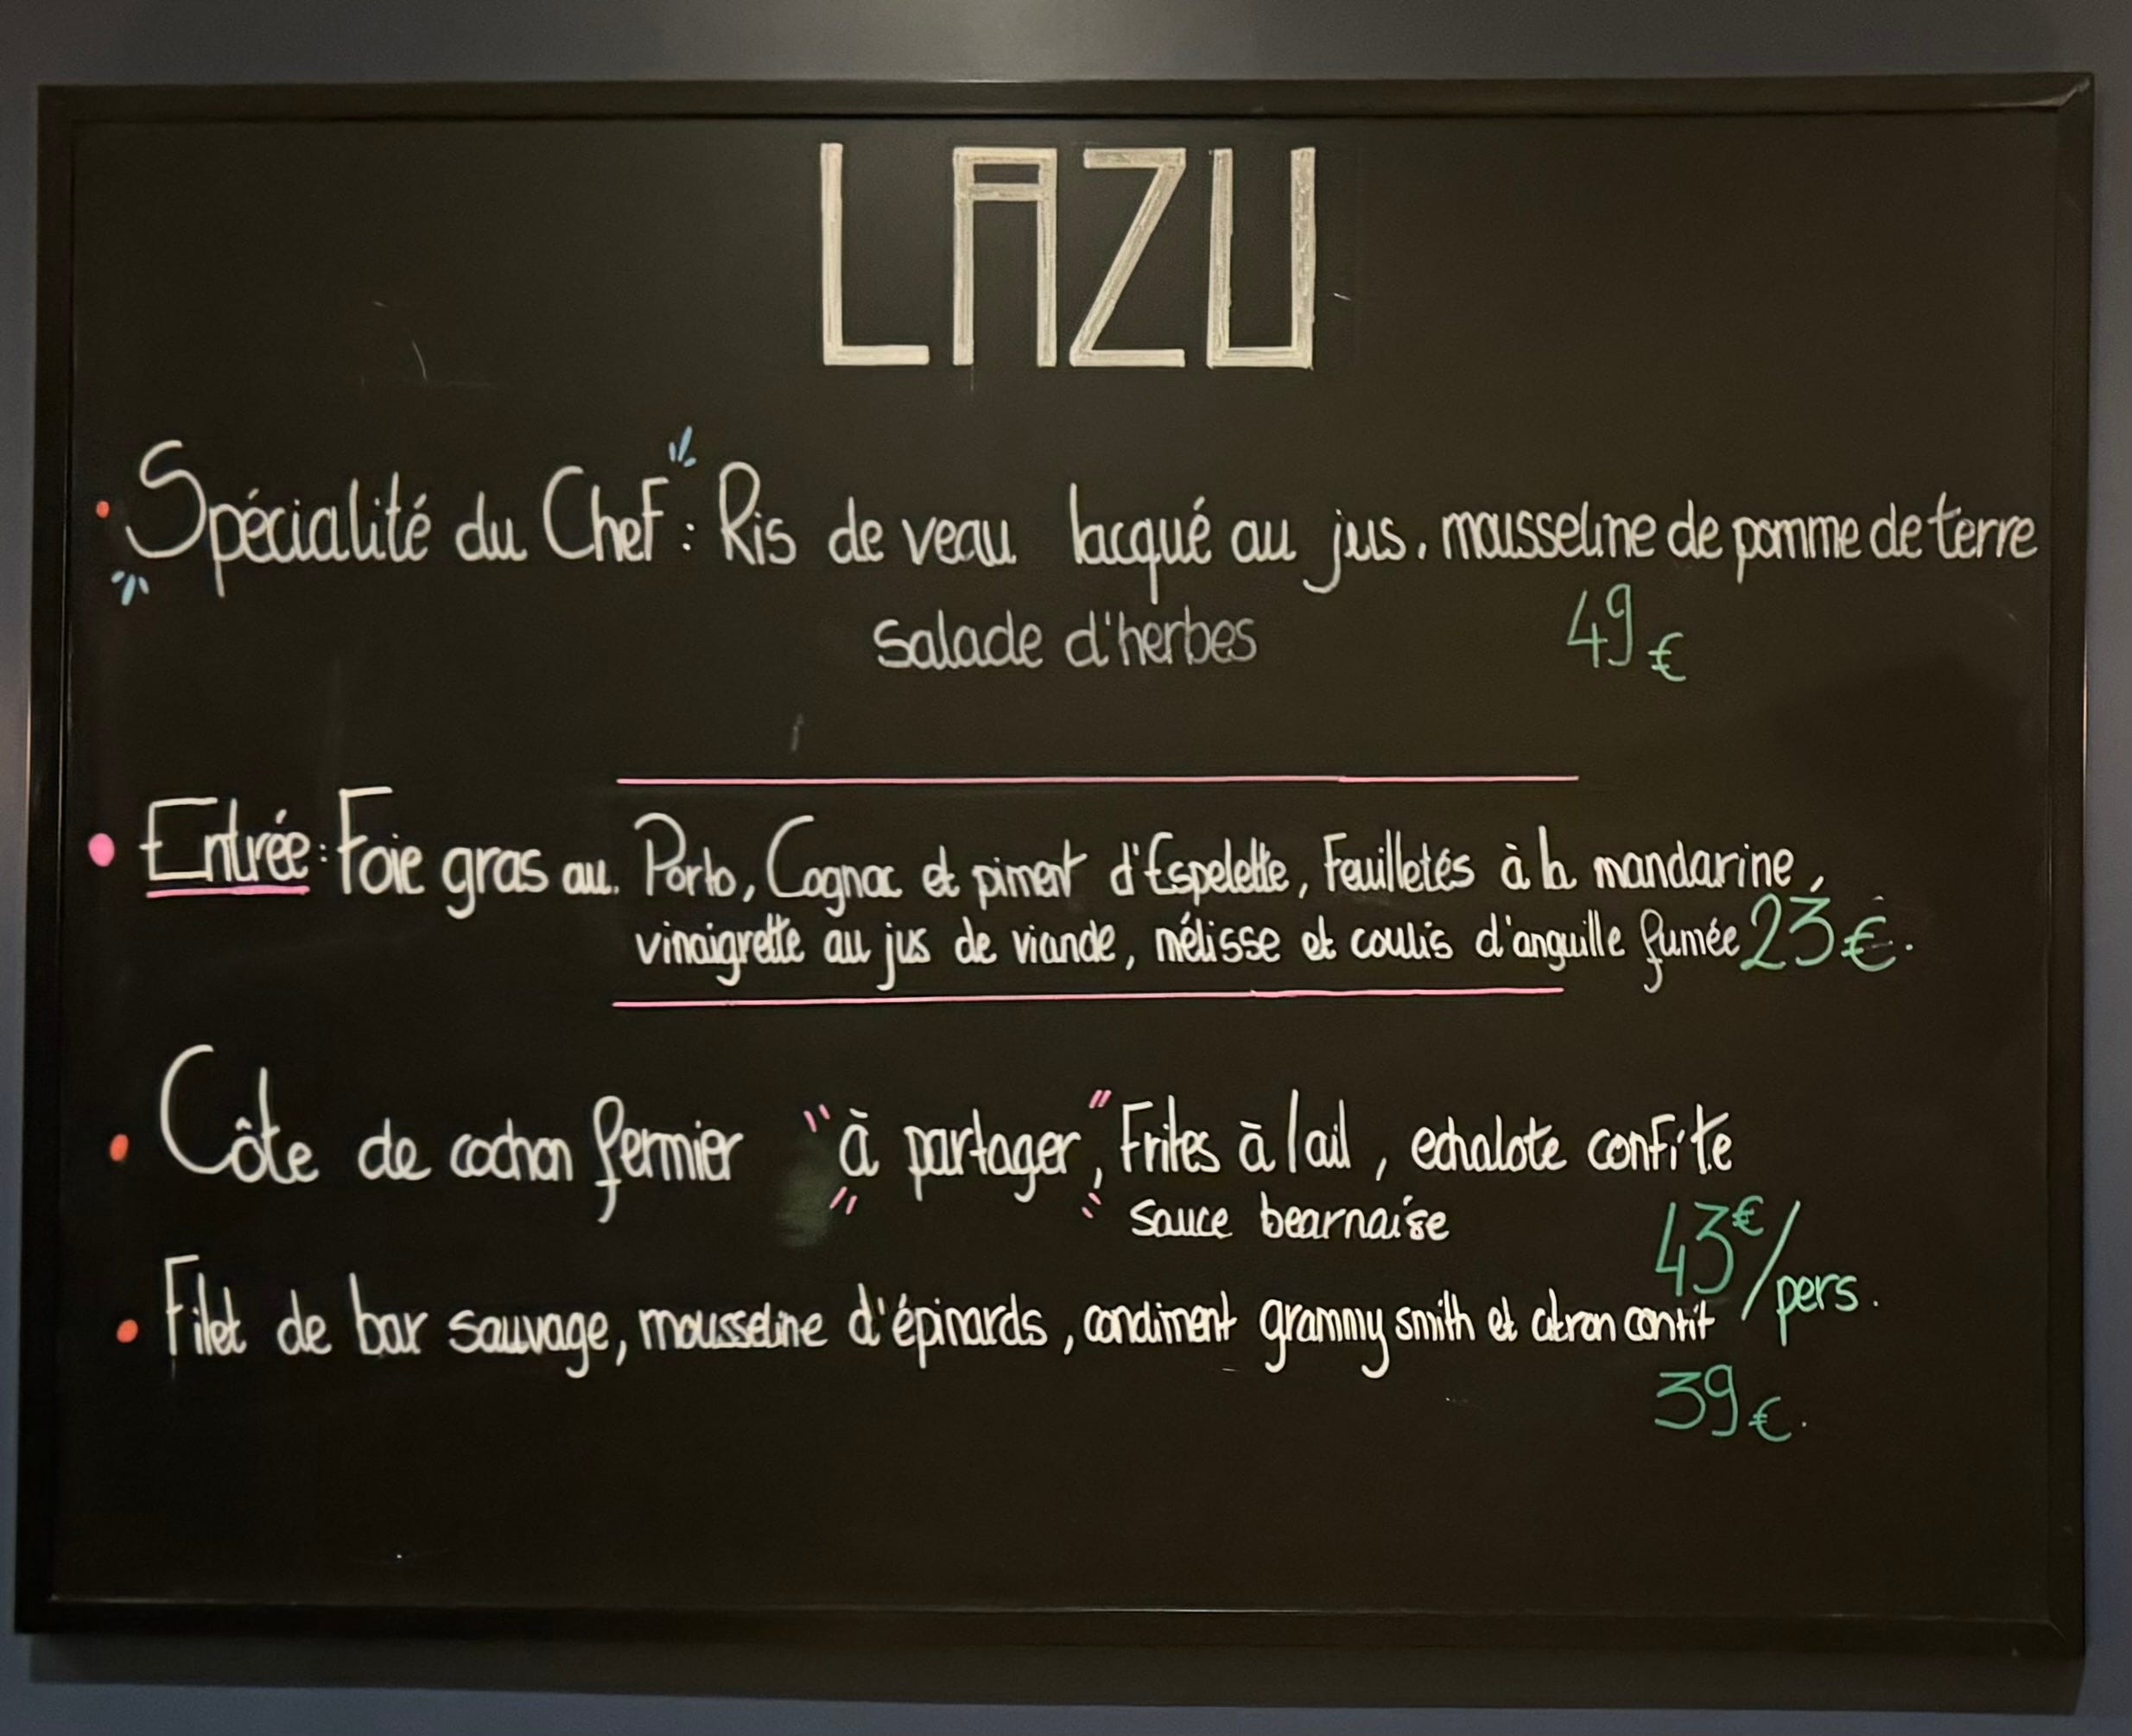 LAZU
• Spécialité du Chef : Ris de veau lacqué au jus, mousseline de pomme de terre
Salade d'herbes 49€
• Entrée : Foie gras au. Porto, Cognac et piment d'Espelette, Feuilletés à la mandarine,
vinaigrette au jus de viande, mélisse et coulis d'anguille fumée 23€.
• Côte de cochon fermier "à partager," Frites à l'ail, echalote confite
sauce bearnaise 43€/pers.
• Filet de bar sauvage, mousseline d'épinards, condiment grammy smith et citron confit
39€.